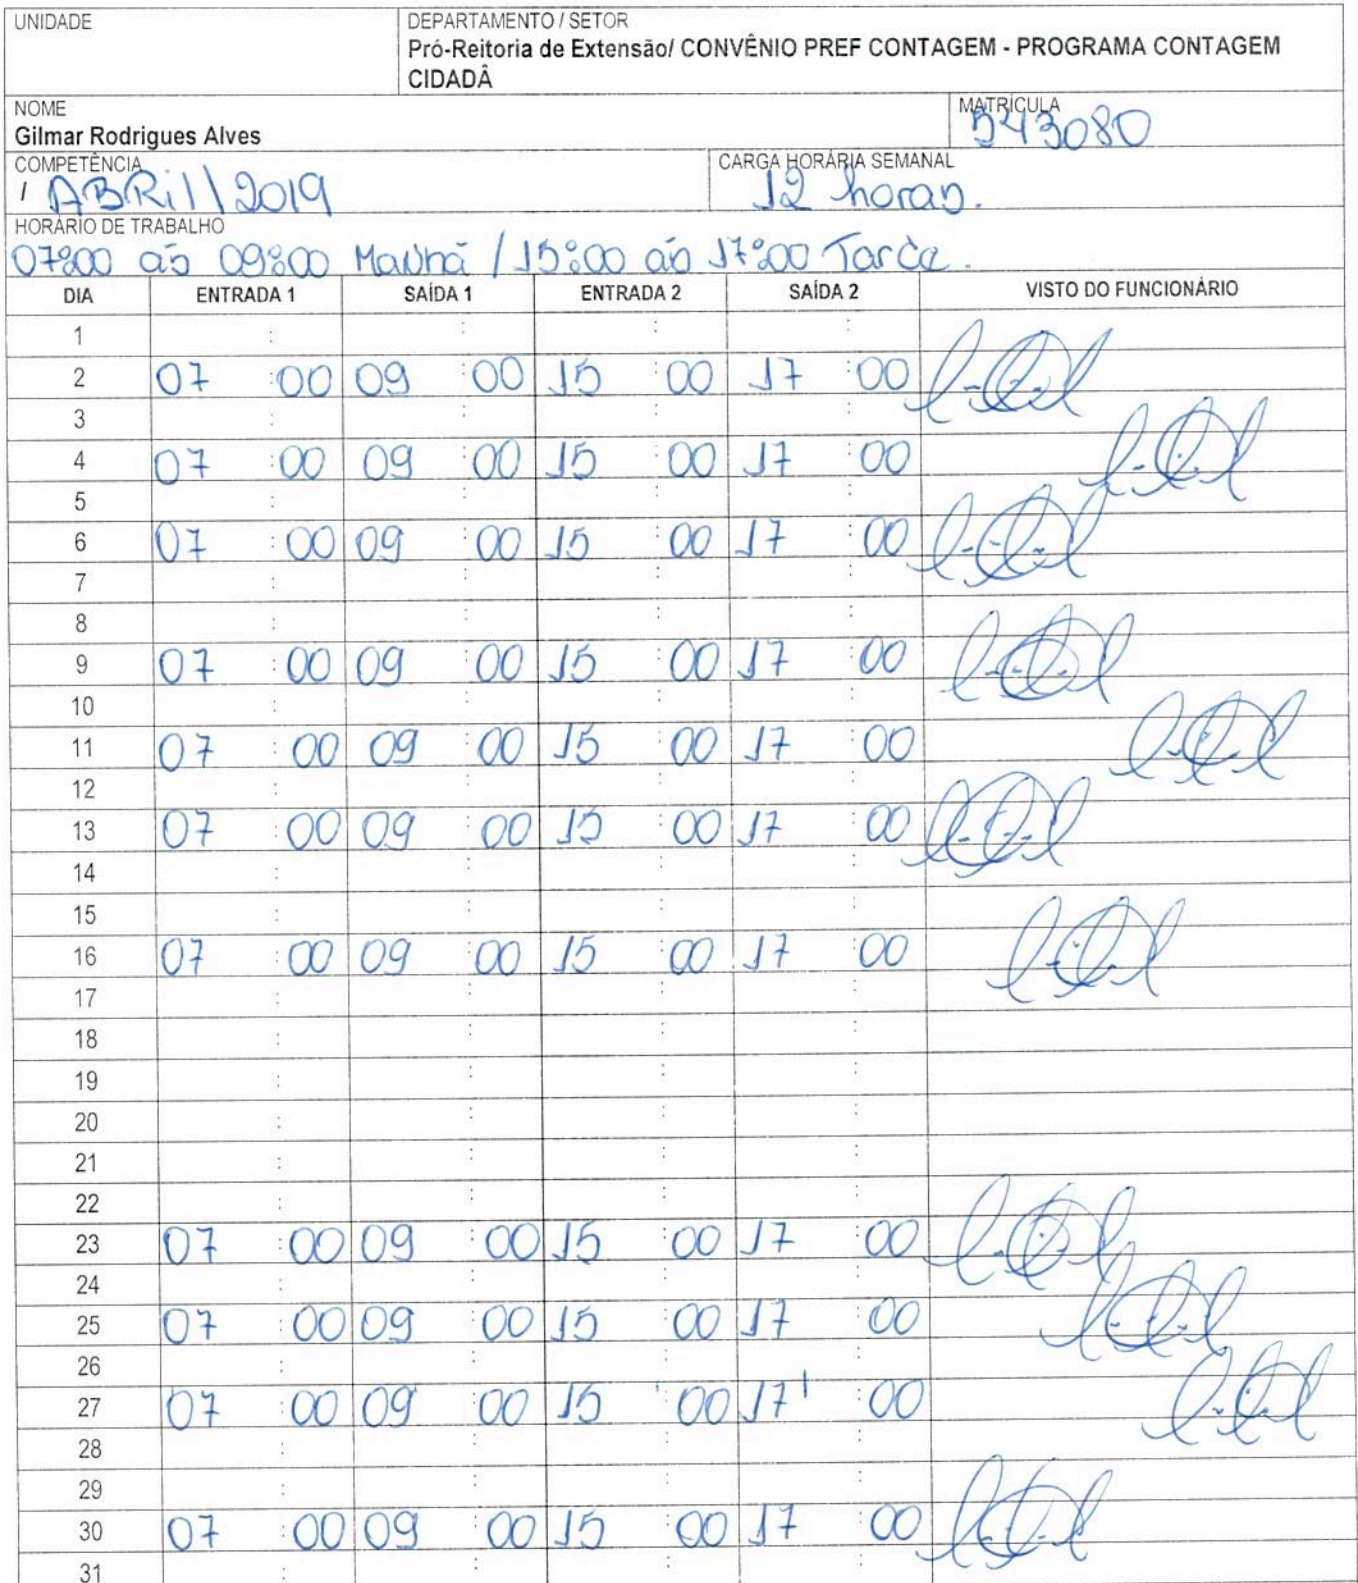 UNIDADE
DEPARTAMENTO / SETOR
Pró-Reitoria de Extensão/ CONVÊNIO PREF CONTAGEM - PROGRAMA CONTAGEM
CIDADÂ
NOME
Gilmar Rodrigues Alves
MATRÍCULA
543080
COMPETÊNCIA
/ ABRil\2019
CARGA HORÁRIA SEMANAL
12 horas.
HORÁRIO DE TRABALHO
07:00 ás 09:00 Manhã / 15:00 ás 17:00 Tarde.
DIA ENTRADA 1 SAÍDA 1 ENTRADA 2 SAÍDA 2 VISTO DO FUNCIONÁRIO
1 : : : :
2 07:00 09:00 15:00 17:00
3 : : : :
4 07:00 09:00 15:00 17:00
5 : : : :
6 07:00 09:00 15:00 17:00
7 : : : :
8 : : : :
9 07:00 09:00 15:00 17:00
10 : : : :
11 07:00 09:00 15:00 17:00
12 : : : :
13 07:00 09:00 15:00 17:00
14 : : : :
15 : : : :
16 07:00 09:00 15:00 17:00
17 : : : :
18 : : : :
19 : : : :
20 : : : :
21 : : : :
22 : : : :
23 07:00 09:00 15:00 17:00
24 : : : :
25 07:00 09:00 15:00 17:00
26 : : : :
27 07:00 09:00 15:00 17:00
28 : : : :
29 : : : :
30 07:00 09:00 15:00 17:00
31 : : : :